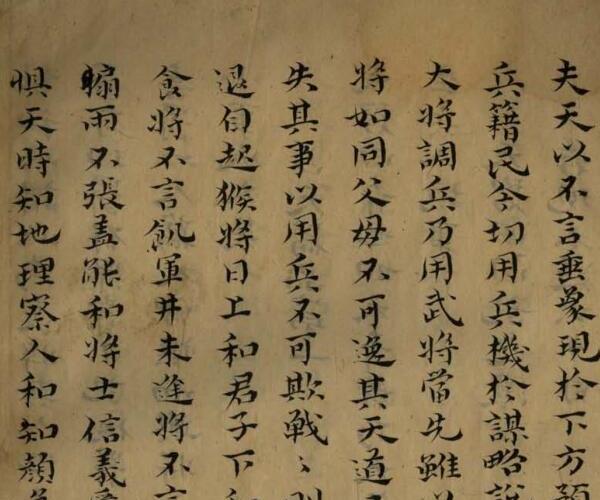 夫天以不言垂象現於下方
兵籍民令切用兵機於謀略
大將調兵乃用武將當先雖
將如同父母不可逸其天道
失其事以用兵不可欺戰〻
退自起猴將曰上和君子下
食將不言飢軍井未逹將不言
暍雨不張盖能和將士信義
惧天時知地理察人和知顏